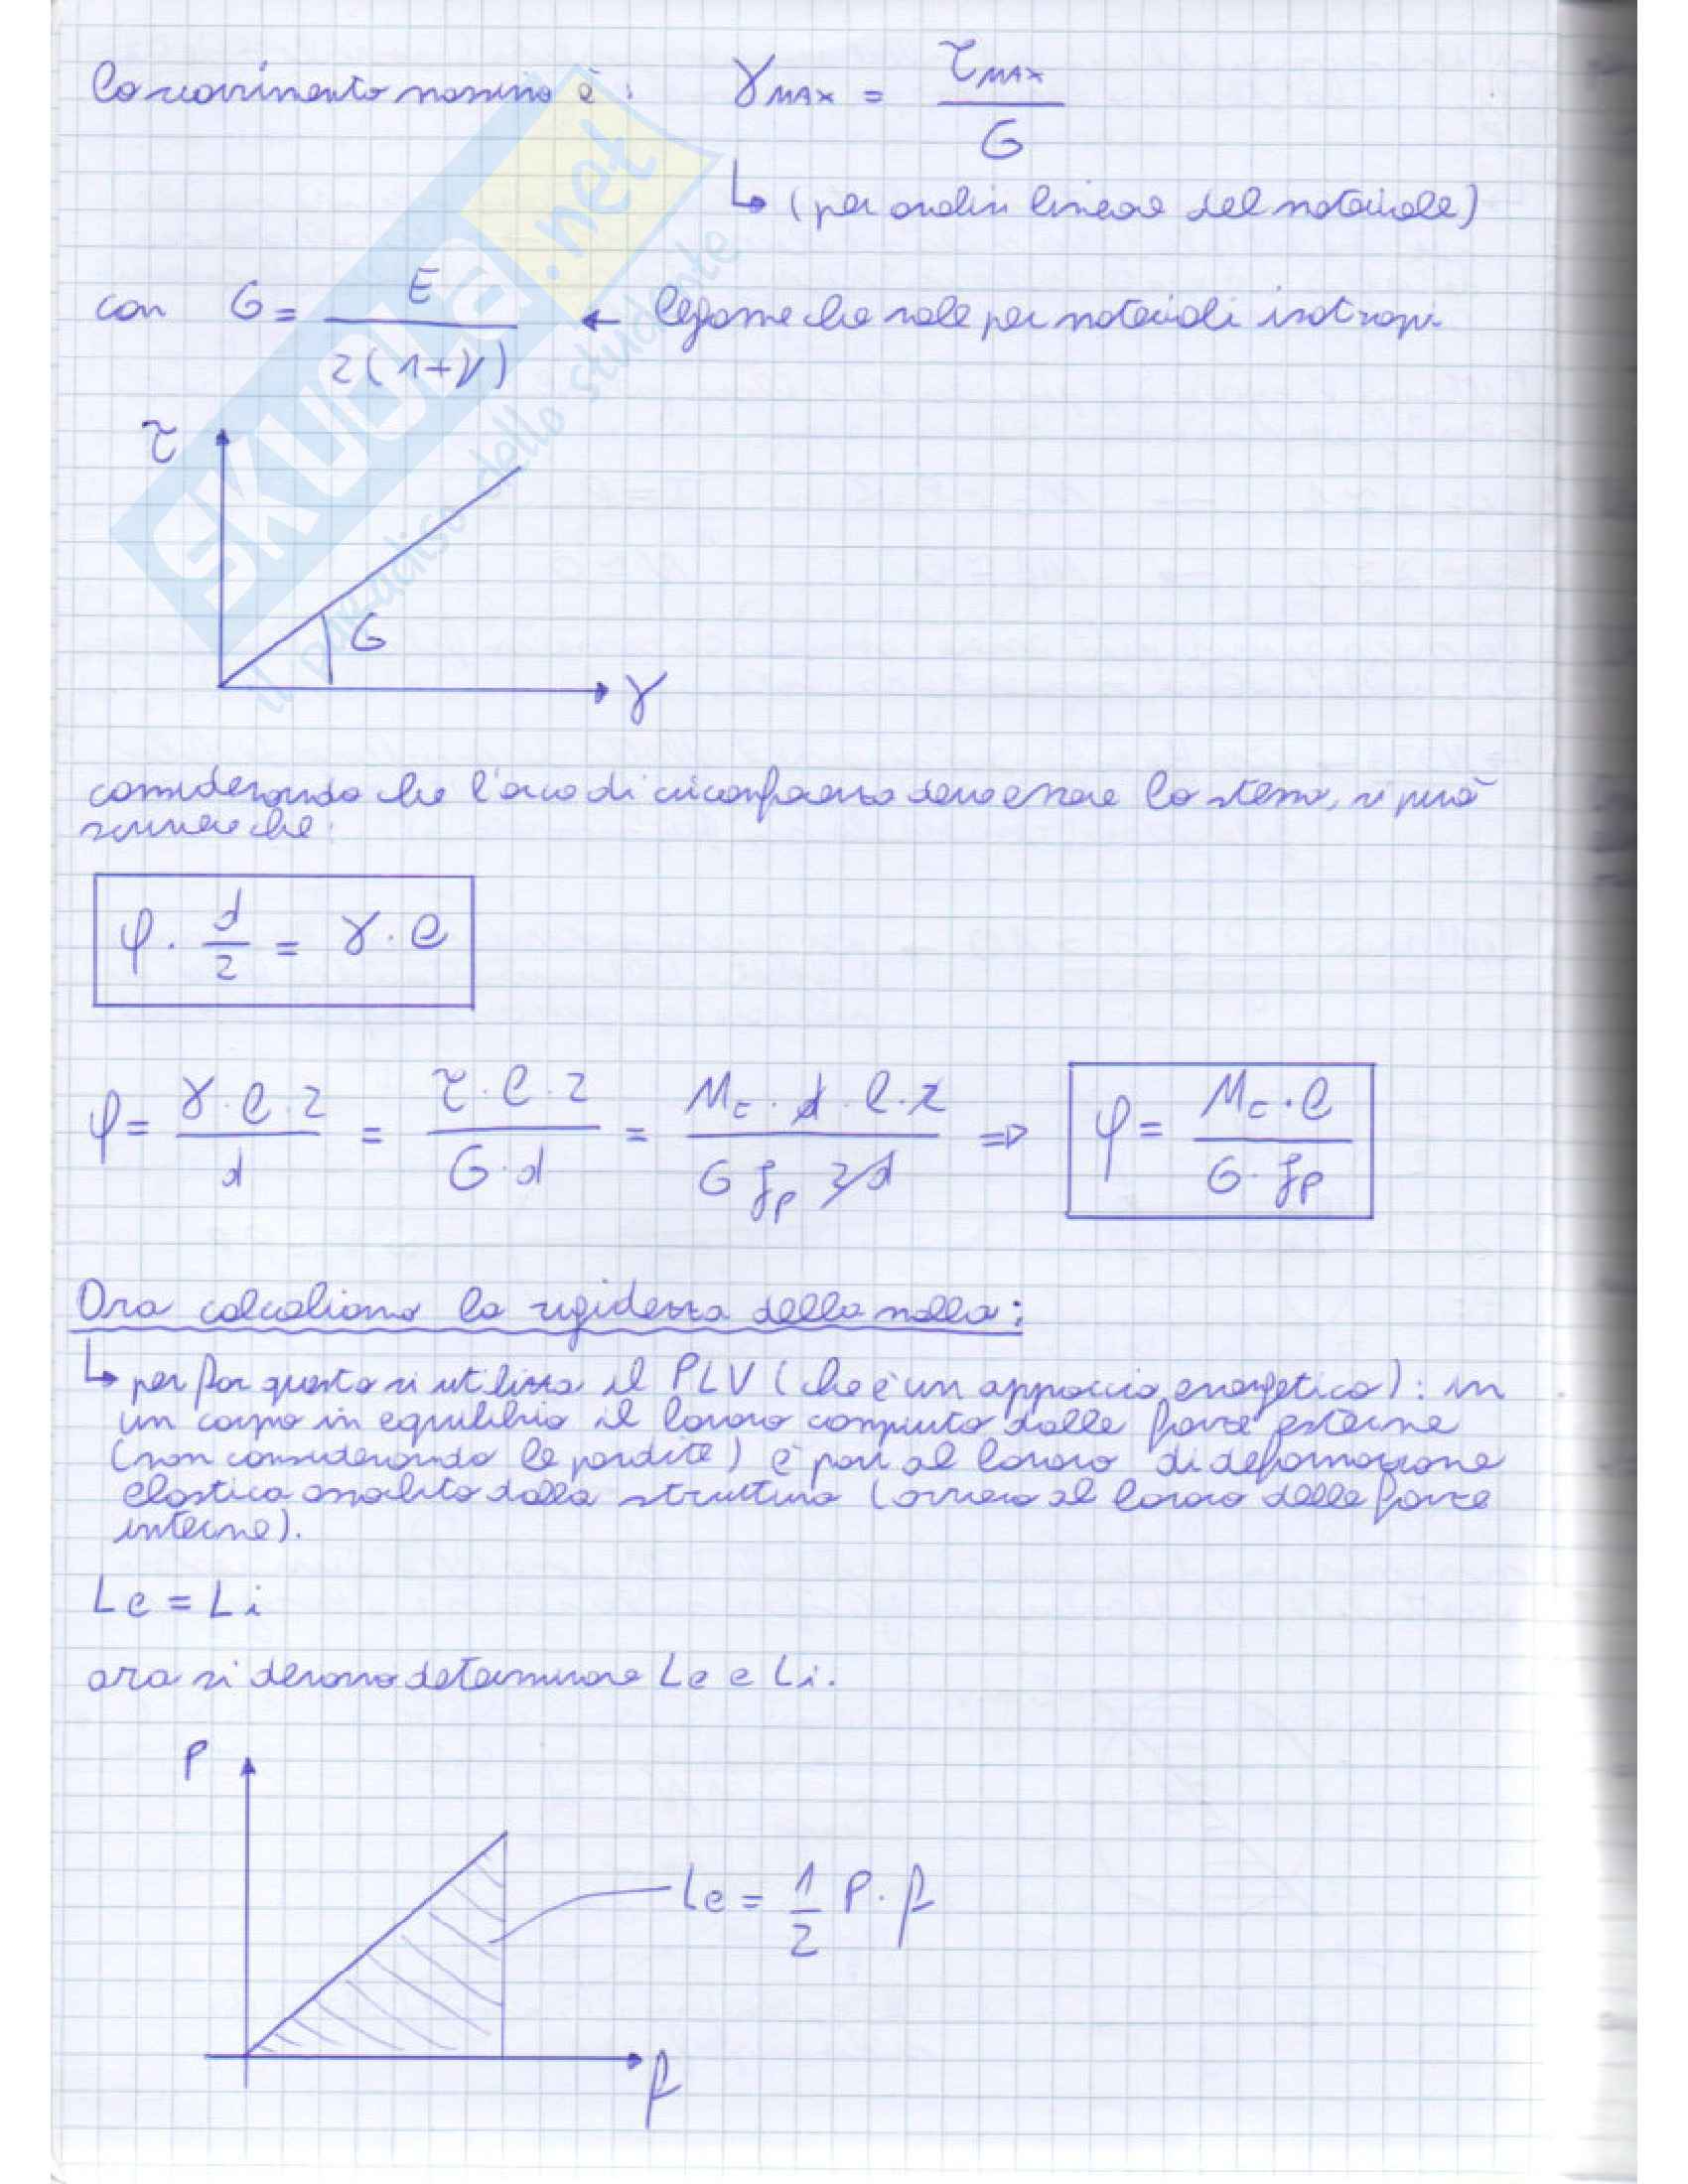 Lo scorrimento massimo è: γMAX = τMAX / G
↳ (per ordin lineare del materiale)
con G = E / 2(1+ν) ← legame che vale per materiali isotropi
τ
G
γ
considerando che l'arco di circonferenza deve essere lo stesso, si può
scrivere che:
φ · d/2 = γ · l
φ = γ · l · 2 / d = τ · l · 2 / G · d = Mt · d · l · 2 / G Jp 2 d ⇒ φ = Mt · l / G · Jp
Ora calcoliamo la rigidezza della molla:
↳ per far questo si utilizza il PLV (che è un approccio energetico): in
un corpo in equilibrio il lavoro compiuto dalle forze esterne
(non considerando le perdite) è pari al lavoro di deformazione
elastica assorbito dalla struttura (ovvero al lavoro delle forze
interne).
Le = Li
ora si devono determinare Le e Li.
P
Le = 1/2 P · f
f
SKUOLA.net
il paradiso dello studente